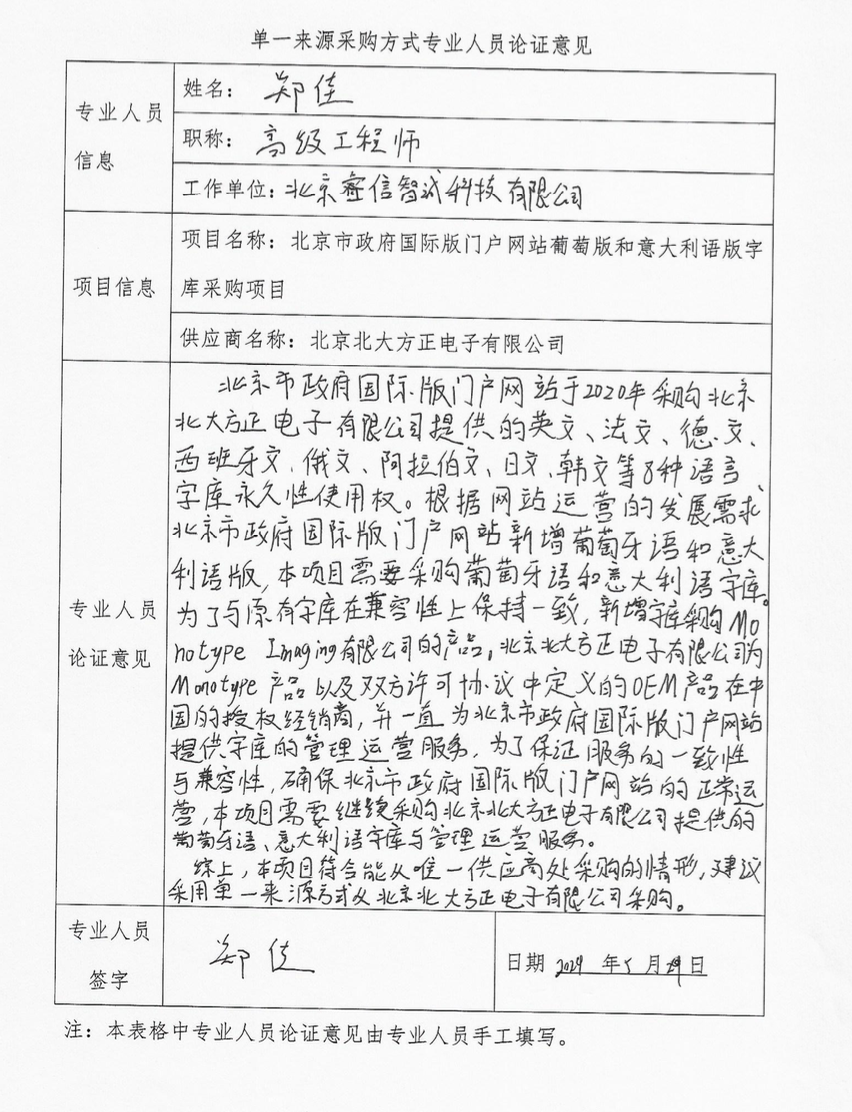 单一来源采购方式专业人员论证意见
专业人员
信息
姓名：郑佳
职称：高级工程师
工作单位：北京睿信智诚科技有限公司
项目信息
项目名称：北京市政府国际版门户网站葡萄版和意大利语版字
库采购项目
供应商名称：北京北大方正电子有限公司
专业人员
论证意见
北京市政府国际版门户网站于2020年采购北京
北大方正电子有限公司提供的英文、法文、德文、
西班牙文、俄文、阿拉伯文、日文、韩文等8种语言
字库永久性使用权。根据网站运营的发展需求，
北京市政府国际版门户网站新增葡萄牙语和意大
利语版，本项目需要采购葡萄牙语和意大利语字库。
为了与原有字库在兼容性上保持一致，新增字库采购Mo
notype Imaging有限公司的产品，北京北大方正电子有限公司为
Monotype产品以及双方许可协议中定义的OEM产品在中
国的授权经销商，并一直为北京市政府国际版门户网站
提供字库的管理运营服务，为了保证服务的一致性
与兼容性，确保北京市政府国际版门户网站的正常运
营，本项目需要继续采购北京北大方正电子有限公司提供的
葡萄牙语、意大利语字库与管理运营服务。
综上，本项目符合能从唯一供应商处采购的情形，建议
采用单一来源方式从北京北大方正电子有限公司采购。
专业人员
签字
郑佳
日期 2024 年 5 月 29 日
注：本表格中专业人员论证意见由专业人员手工填写。